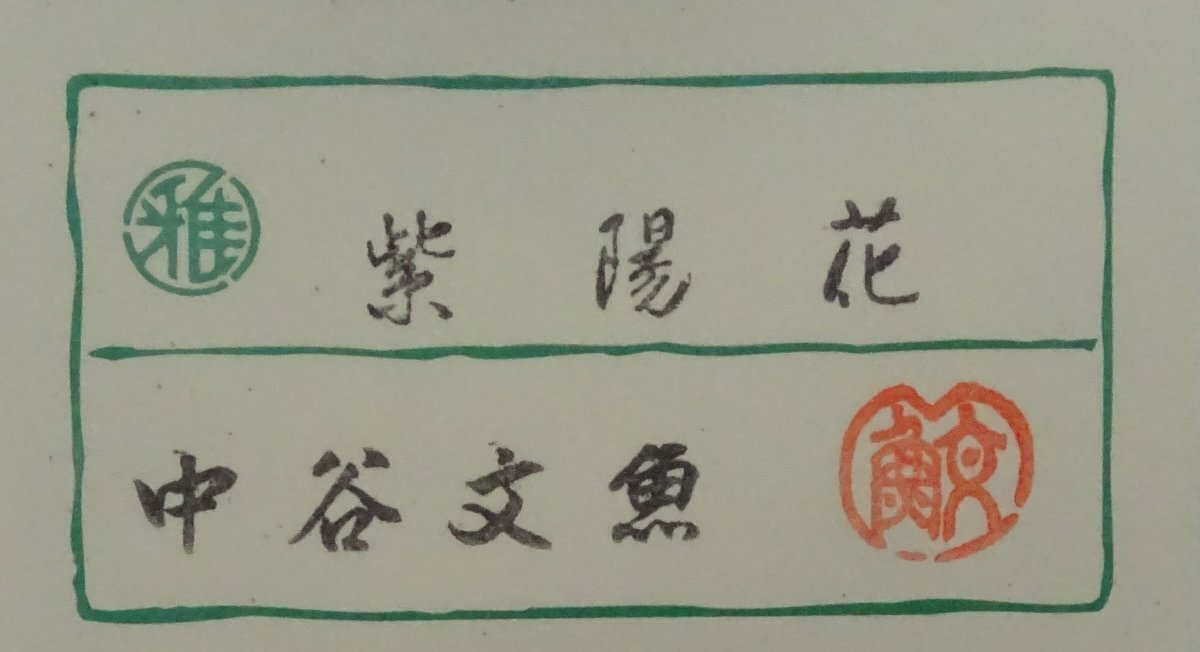 雅 紫陽花
中谷文魚